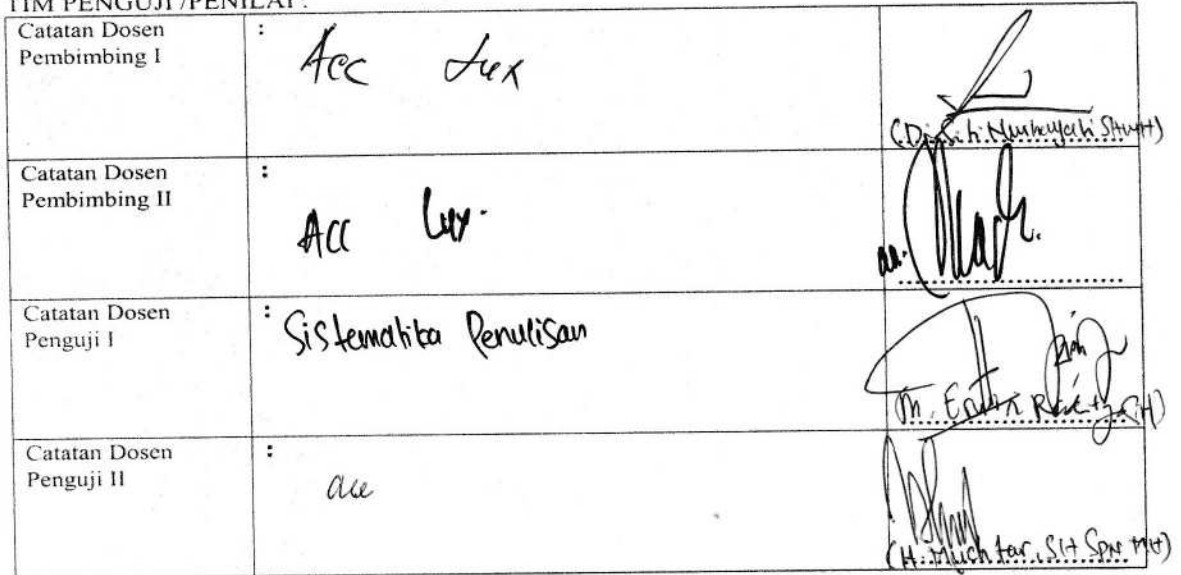 TIM PENGUJI /PENILAI :
Catatan Dosen
Pembimbing I
:
Acc
Catatan Dosen
Pembimbing II
:
Acc
an.
Catatan Dosen
Penguji I
:
Sistematika Penulisan
M. Erwin
Catatan Dosen
Penguji II
:
acc
(H. Muchtar, SH SpN MH)